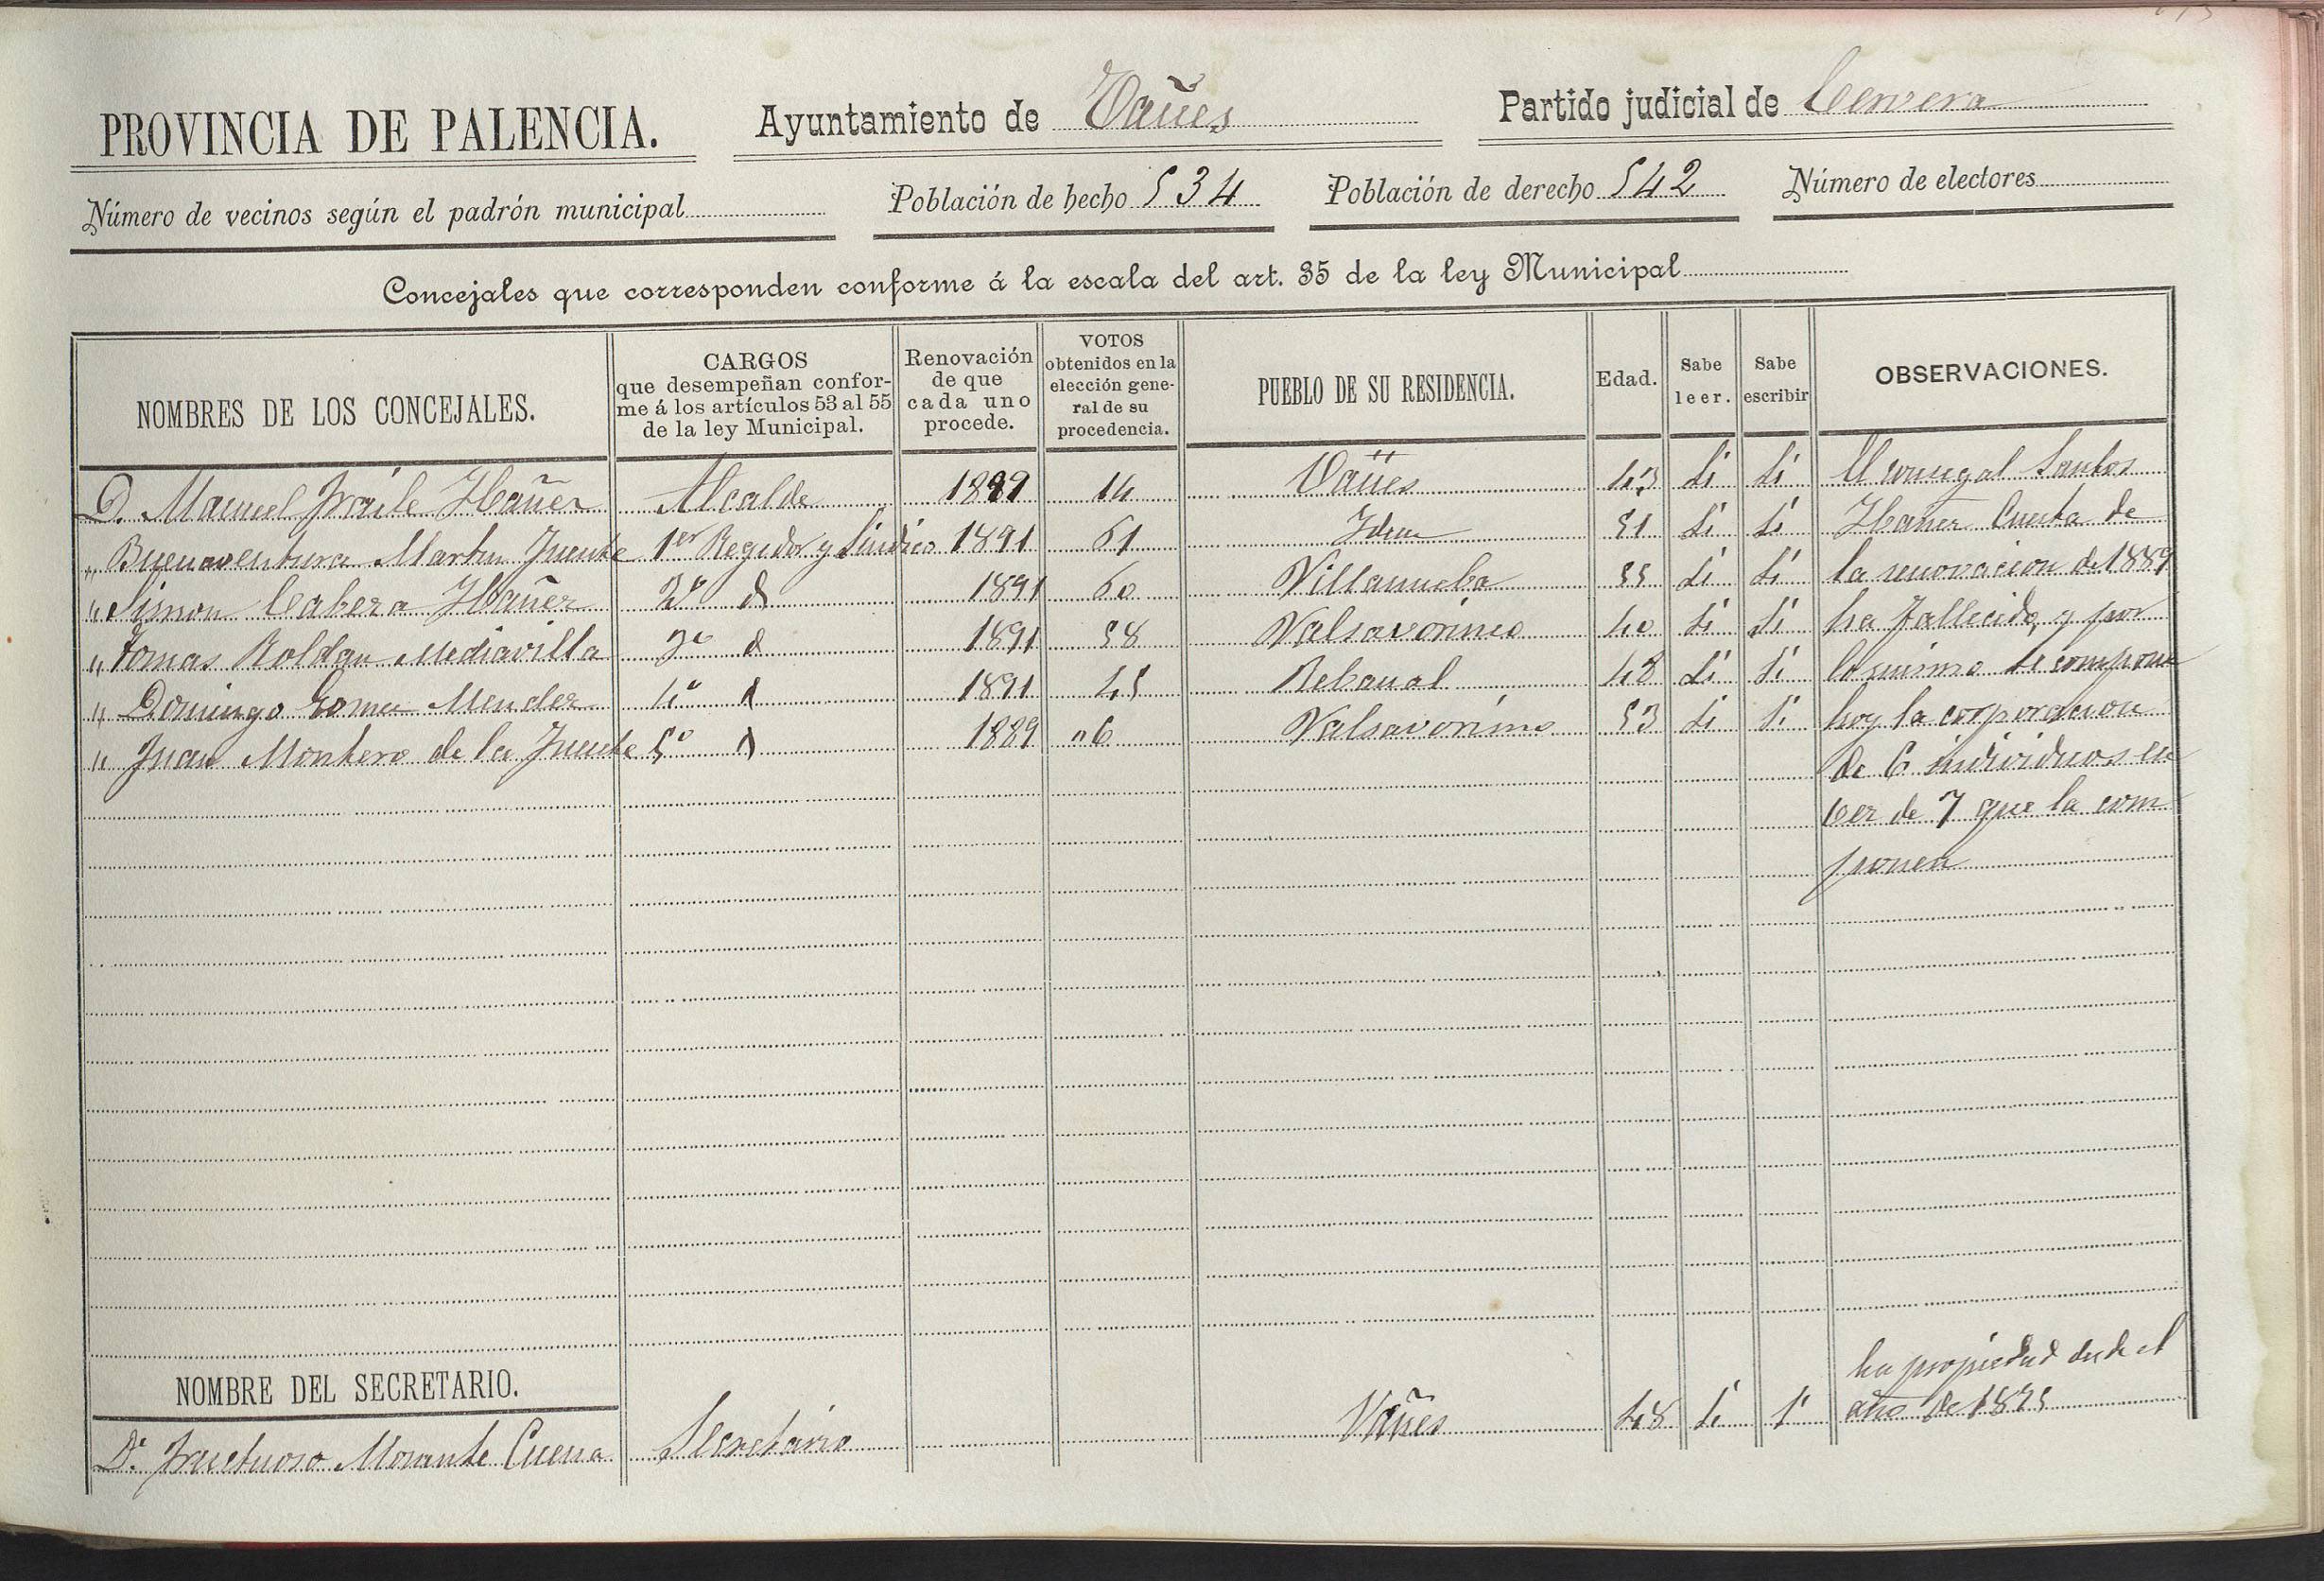 PROVINCIA DE PALENCIA. Ayuntamiento de Vañes Partido judicial de Cervera
Número de vecinos según el padrón municipal Población de hecho 534 Población de derecho 542 Número de electores
Concejales que corresponden conforme á la escala del art. 35 de la ley Municipal
NOMBRES DE LOS CONCEJALES.
CARGOS
que desempeñan confor-
me á los artículos 53 al 55
de la ley Municipal.
Renovación
de que
cada uno
procede.
VOTOS
obtenidos en la
elección gene-
ral de su
procedencia.
PUEBLO DE SU RESIDENCIA.
Edad.
Sabe
leer.
Sabe
escribir
OBSERVACIONES.
D. Manuel Fraile Ibañez Alcalde 1889 14 Vañes 43 Si Si El conzegal Santos
" Buenaventura Martin Fuente 1er Regidor y Sindico 1891 61 Idem 51 Si Si Ibañez Cuesta de
" Simon Cabeza Ibañez 2º d 1891 60 Villanueba 55 Si Si la renovacion de 1889
" Tomas Roldan Mediavilla 3º d 1891 58 Valsavorino 40 Si Si ha fallecido, y por
" Domingo Gomez Mendez 4º d 1891 45 Rebanal 48 Si Si lo mismo se compone
" Juan Montero de la Fuente 5º d 1889 "6 Valsavorino 53 Si Si hoy la corporacion
de 6 individuos en
vez de 7 que la com
ponen
NOMBRE DEL SECRETARIO.
D. Fructuoso Morante Cuena Secretario Vañes 48 Si Si en propiedad desde el
año de 1875